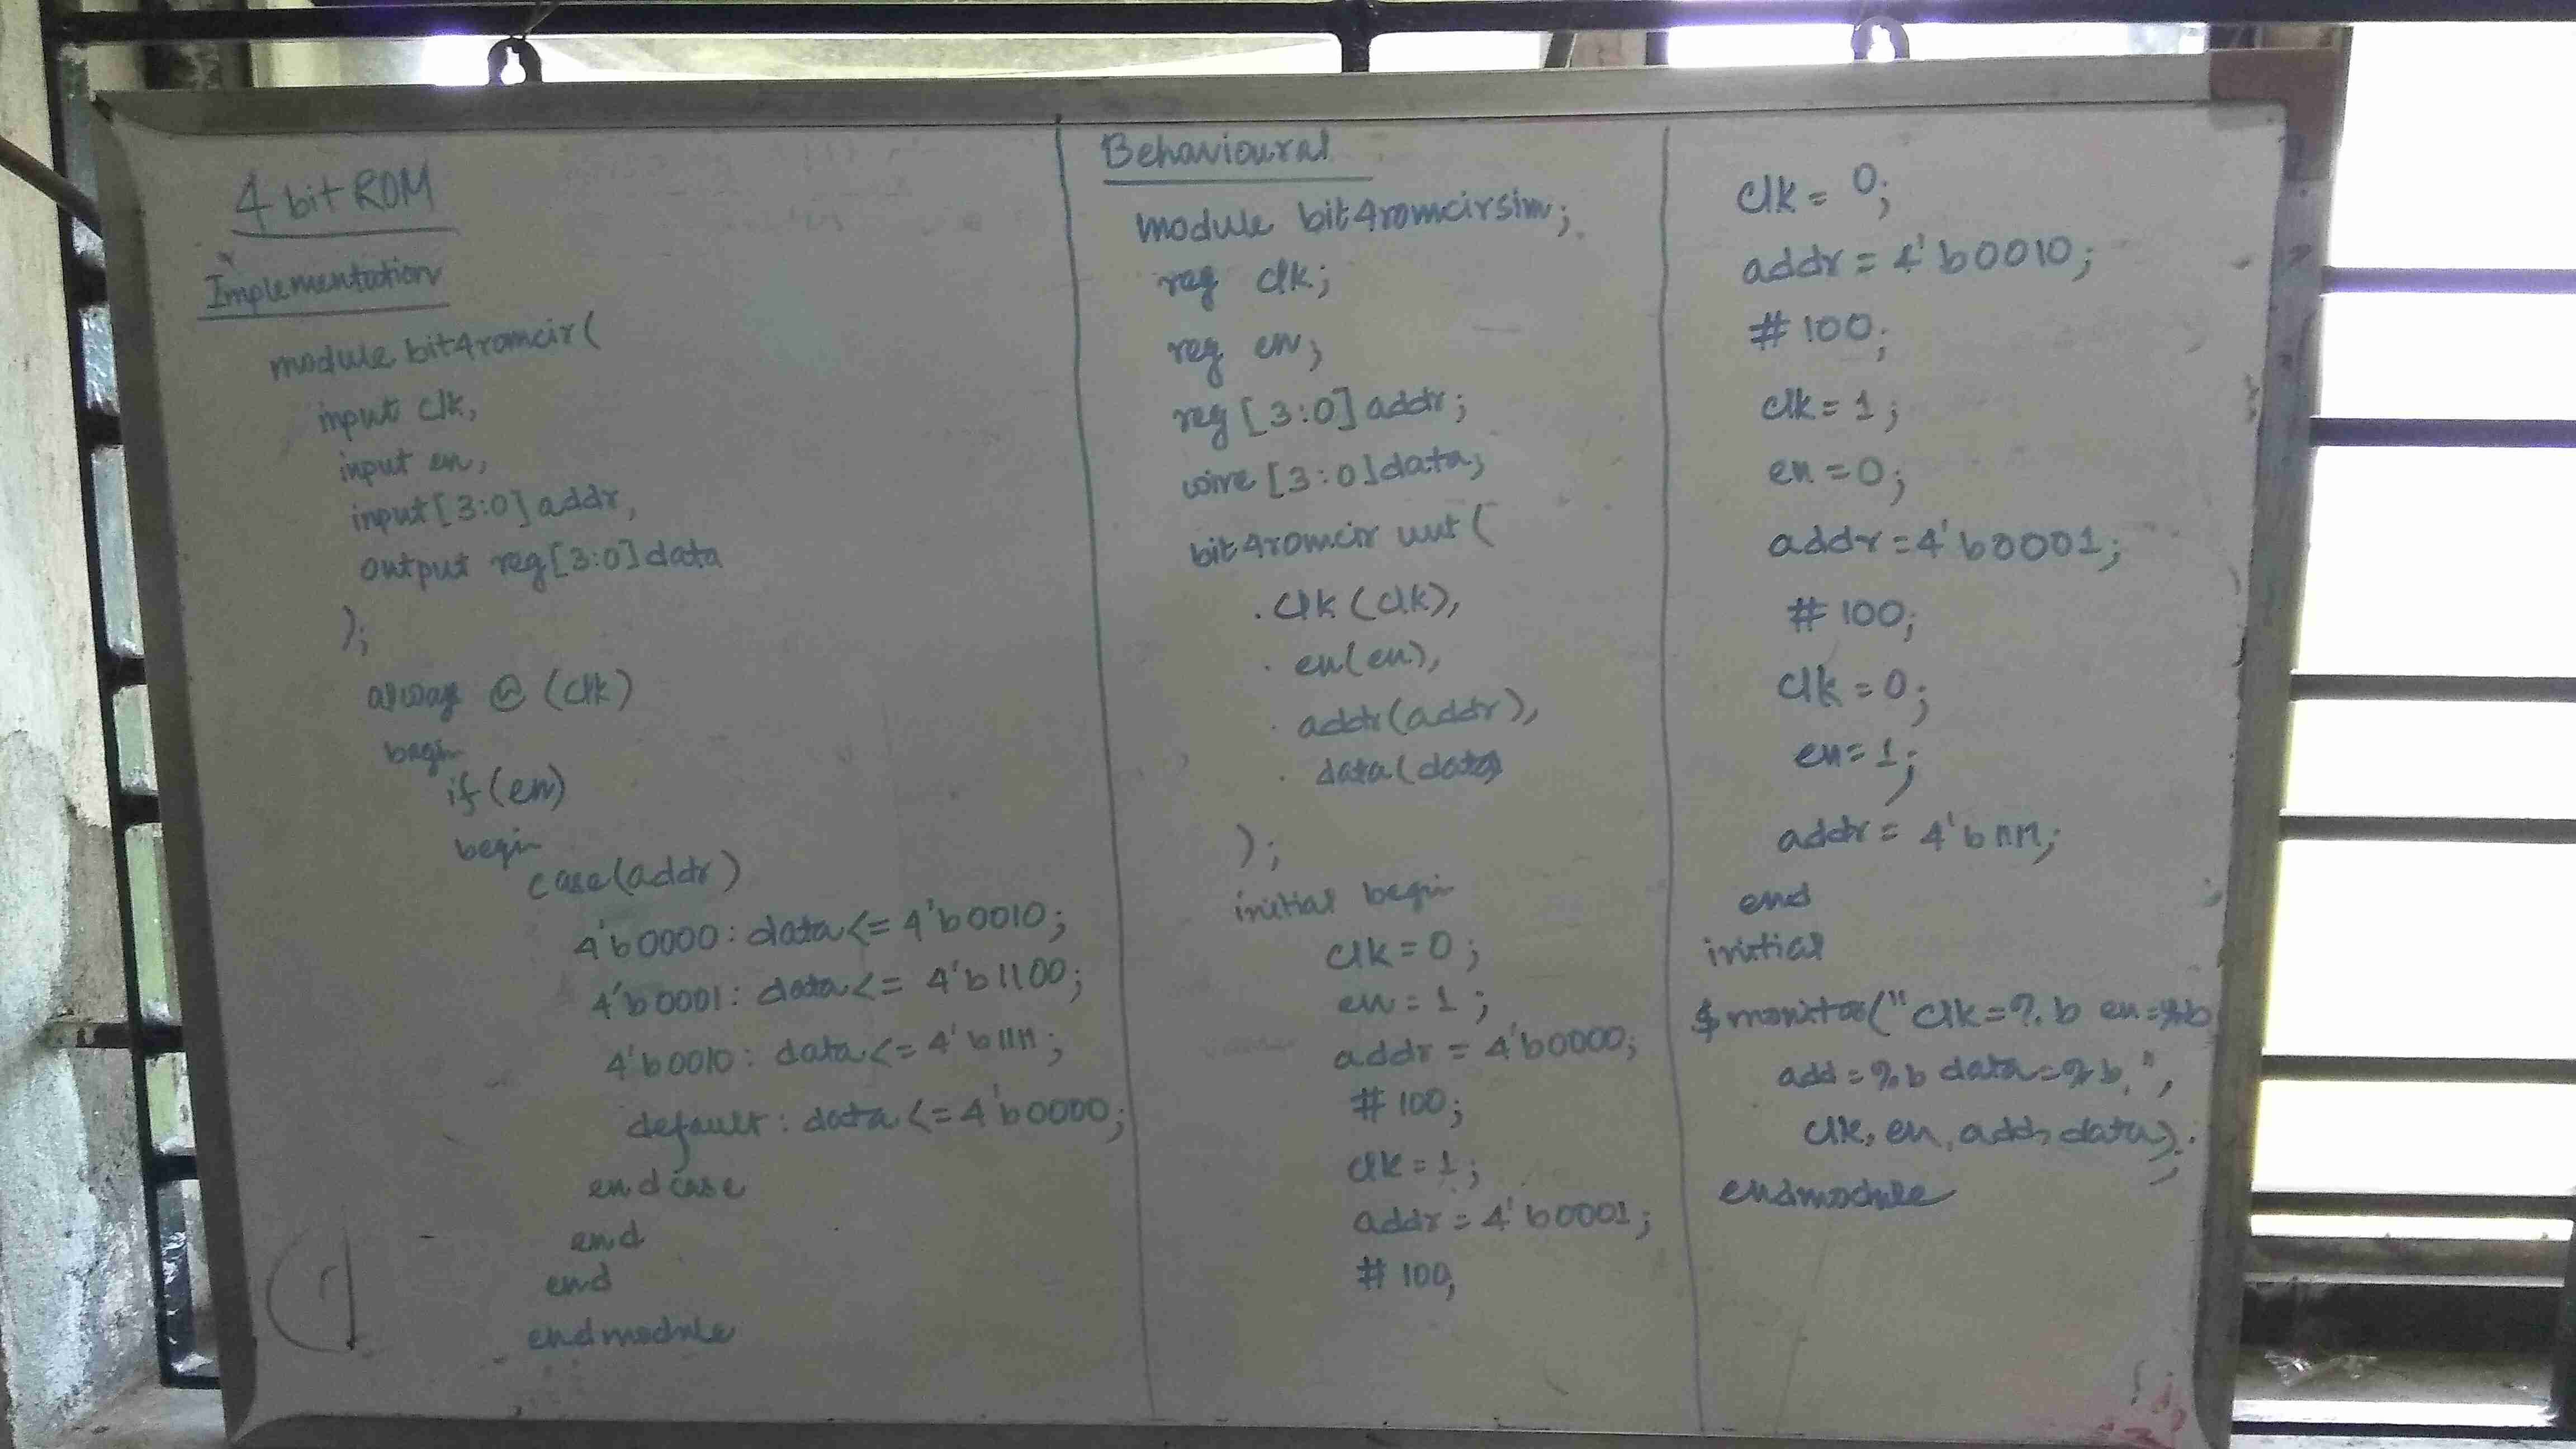 4 bit ROM
Implementation
module bit4romcir(
input clk,
input en,
input [3:0] addr,
output reg[3:0] data
);
always @ (clk)
begin
if (en)
begin
case(addr)
4'b0000: data <= 4'b0010;
4'b0001: data <= 4'b1100;
4'b0010: data <= 4'b1111;
default: data <= 4'b0000;
endcase
end
end
endmodule
Behavioural
module bit4romcirsim;
reg clk;
reg en;
reg [3:0] addr;
wire [3:0] data;
bit4romcir uut (
. clk (clk),
. en(en),
. addr(addr),
. data(data)
);
initial begin
clk = 0;
en = 1;
addr = 4'b0000;
# 100;
clk = 1;
addr = 4'b0001;
# 100;
clk = 0;
addr = 4'b0010;
# 100;
clk = 1;
en = 0;
addr = 4'b0001;
# 100;
clk = 0;
en = 1;
addr = 4'b1111;
end
initial
$ monitor("clk=%b en=%b
add=%b data=%b,",
clk, en, add, data);
endmodule